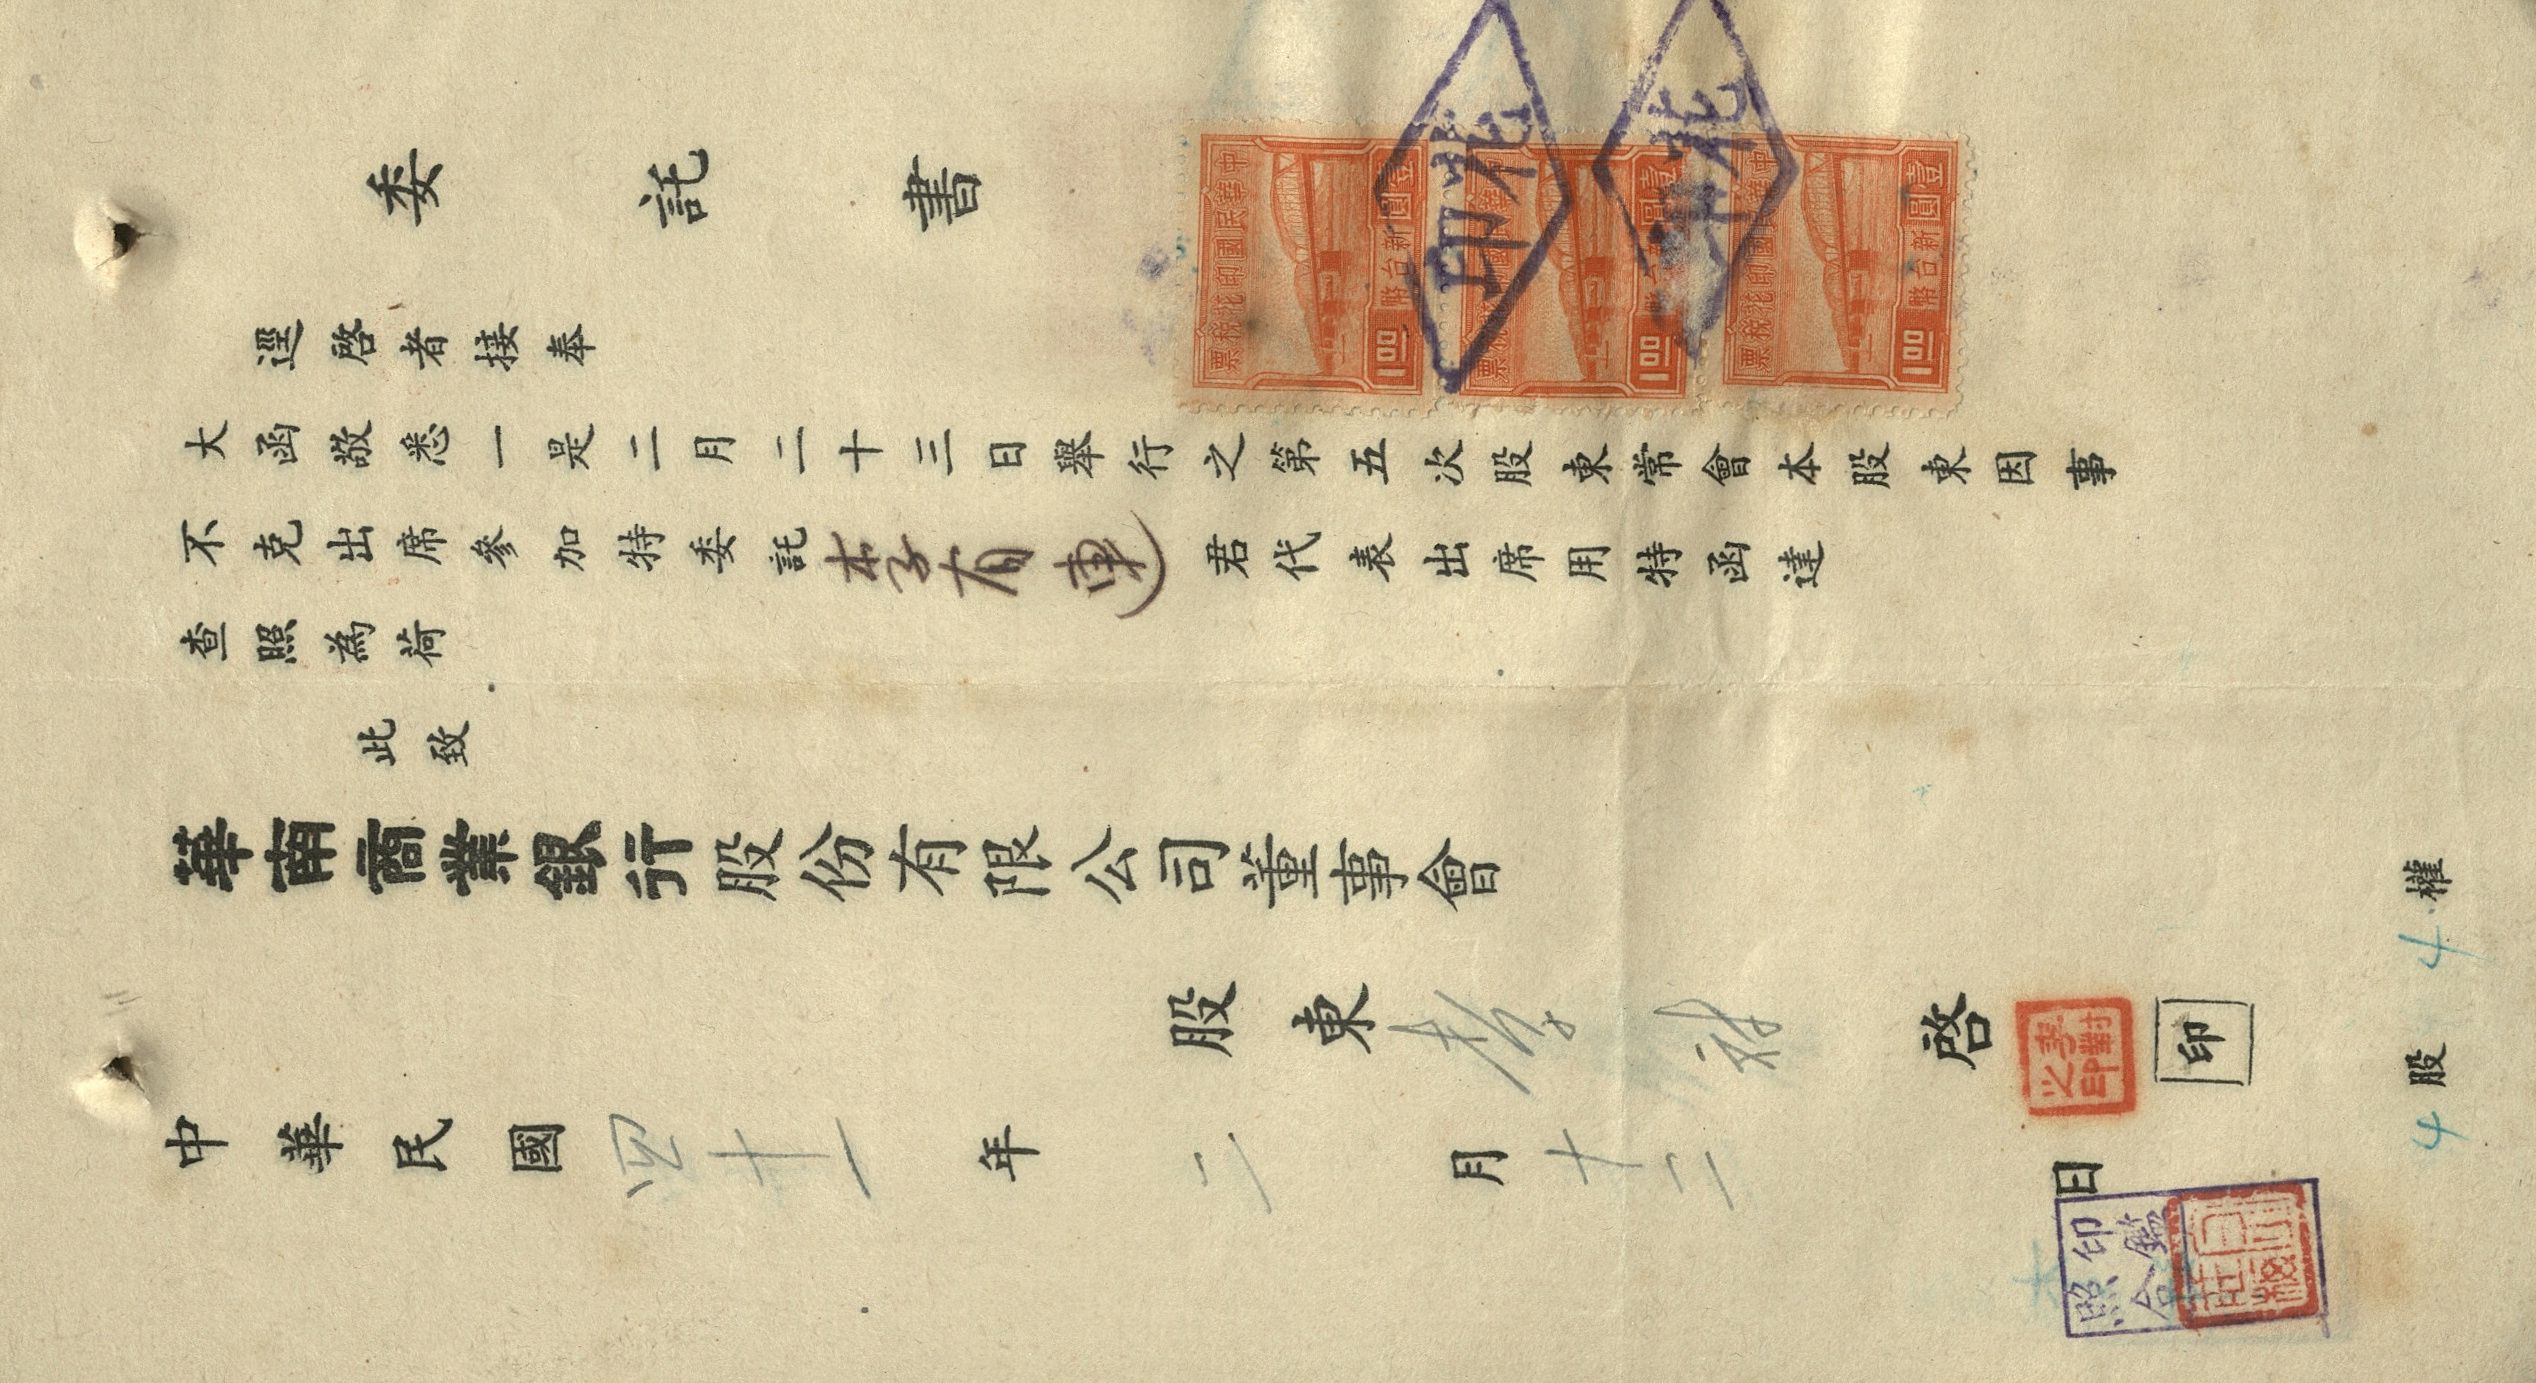 委託書
逕啓者接奉
大函敬悉一是二月二十三日舉行之第五次股東常會本股東因事
不克出席參加特委託李有連君代表出席用特函達
查照為荷
此致
華南商業銀行股份有限公司董事會
股東李 啓
印
中華民國四十一年二月十二日
4股 4權
中華民國印花稅票
壹圓新台幣
1.00
中華民國印花稅票
壹圓新台幣
1.00
中華民國印花稅票
壹圓新台幣
1.00
印花
印花
印鑑
照合